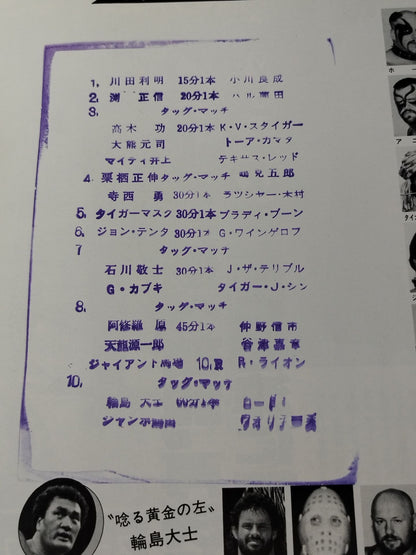 1. 川田利明 15分1本 小川良成
2. 渕 正信 20分1本 ハル薗田
3. タッグ・マッチ
高木 功 20分1本 K・V・スタイガー
大熊元司 トーア・カマタ
マイティ井上 テキサス・レッド
4. 栗栖正伸 タッグ・マッチ 鶴見五郎
寺西 勇 30分1本 ラッシャー・木村
5. タイガーマスク 30分1本 ブラディ・ブーン
6. ジョン・テンタ 30分1本 G・ワインゲロフ
7 タッグ・マッチ
石川敬士 30分1本 J・ザ・テリブル
G・カブキ タイガー・J・シン
8. タッグ・マッチ
阿修羅 原 45分1本 仲野信市
天龍源一郎 谷津嘉章
ジャイアント馬場 10.R R・ライオン
10. タッグ・マッチ
輪島 大士 60分1本
ジャンボ鶴田 ウォリアーズ
ホー
アニ
タイ
〝唸る黄金の左〟
輪島大士